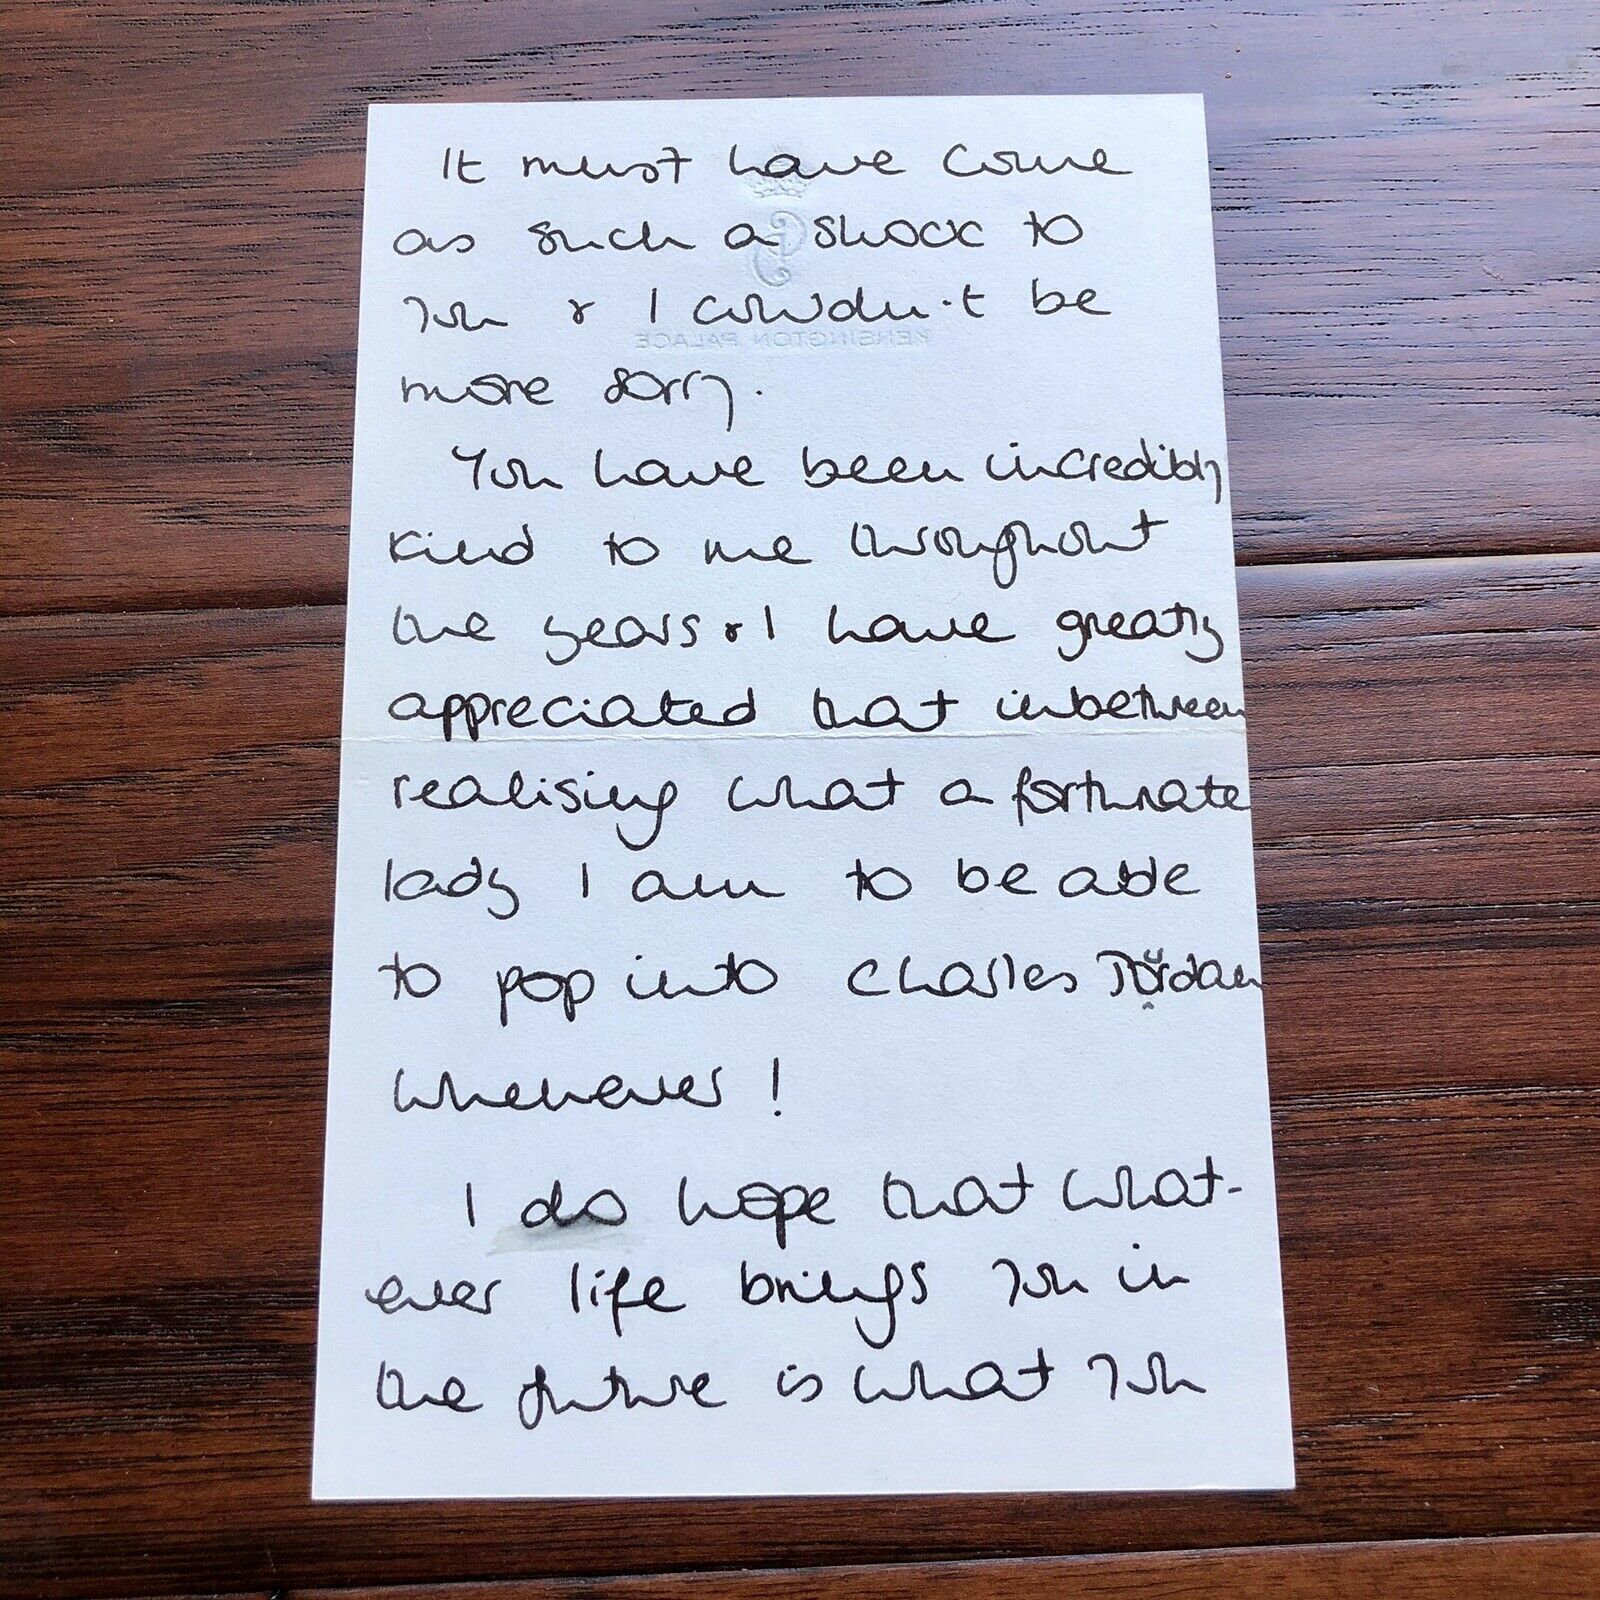 It must have come
as such a shock to
you & I couldn't be
KENSINGTON PALACE
more sorry.
You have been incredibly
kind to me throughout
the years & I have greatly
appreciated that inbetween
realising what a fortunate
lady I am to be able
to pop into Charles Jordan
whenever!
I do hope that what-
ever life brings you in
the future is what you